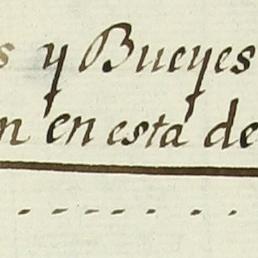 s y Bueyes
n en esta de